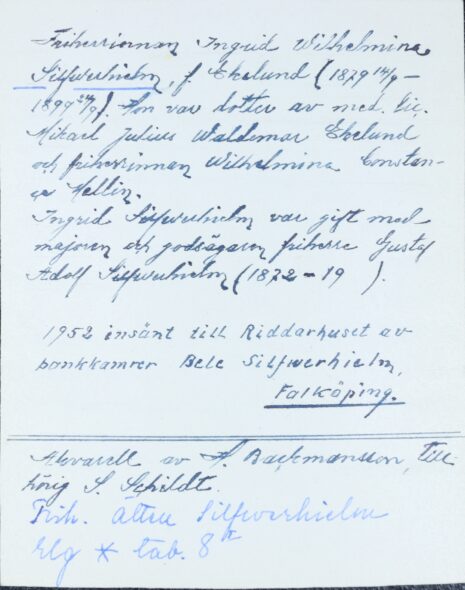 Friherrinnan Ingrid Wilhelmina
Silfwerhielm, f. Ekelund (1879 14/9 –
1899 24/9). Hon var dotter av med. lic.
Mikael Julius Waldemar Ekelund
och friherrinnan Wilhelmina Constan-
ce Mellin.
Ingrid Silfwerhielm var gift med
majoren och godsägaren friherre Gustaf
Adolf Silfwerhielm (1872 – 19 ).
1952 insänt till Riddarhuset av
bankkamrer Bele Silfwerhielm,
Falköping.
Akvarell av A. Backmansson, till-
hörig S. Schildt.
Frih. ätten Silfwerhielm
Elg * tab. 8